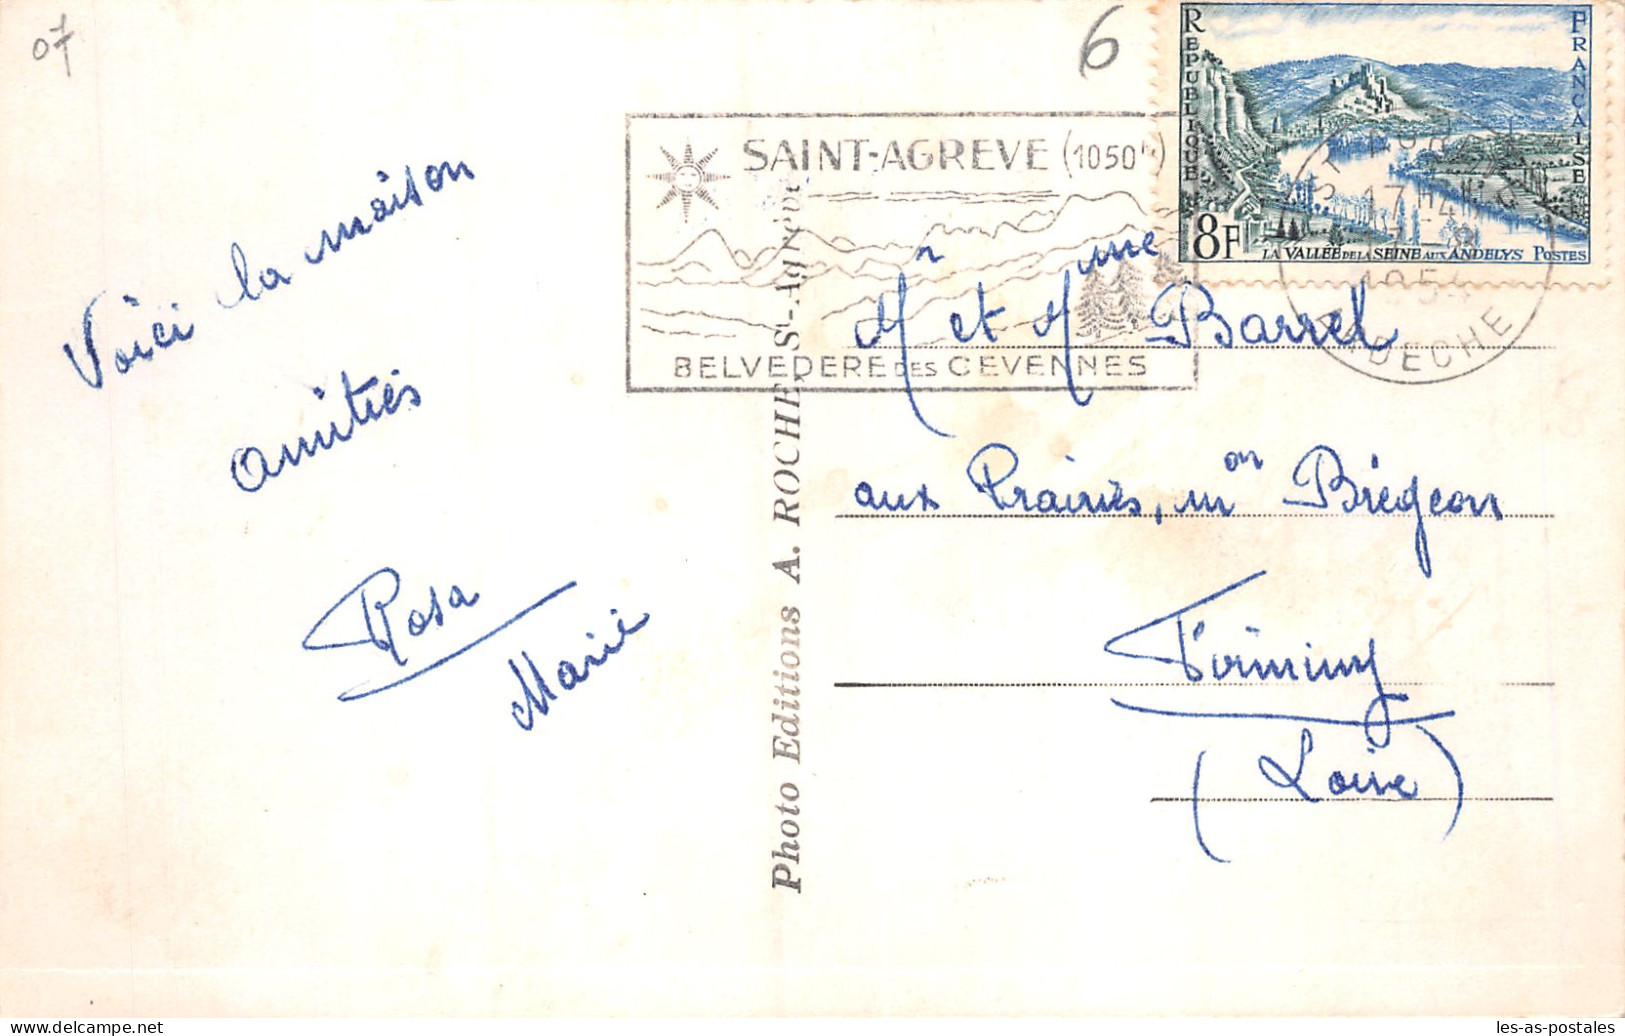 07
6
RÉPUBLIQUE FRANÇAISE
8F
LA VALLÉE DE LA SEINE AUX ANDELYS POSTES
SAINT-AGREVE (1050m)
BELVEDERE DES CEVENNES
17 H 45
1954
ARDECHE
Voici la maison
amitiés
Rosa
Marie
Photo Editions A. ROCHE, St-Agrève
Mr et Mme Barrel
aux Prairies, mon Brégeon
Firminy
(Loire)
les-as-postales
www.delcampe.net